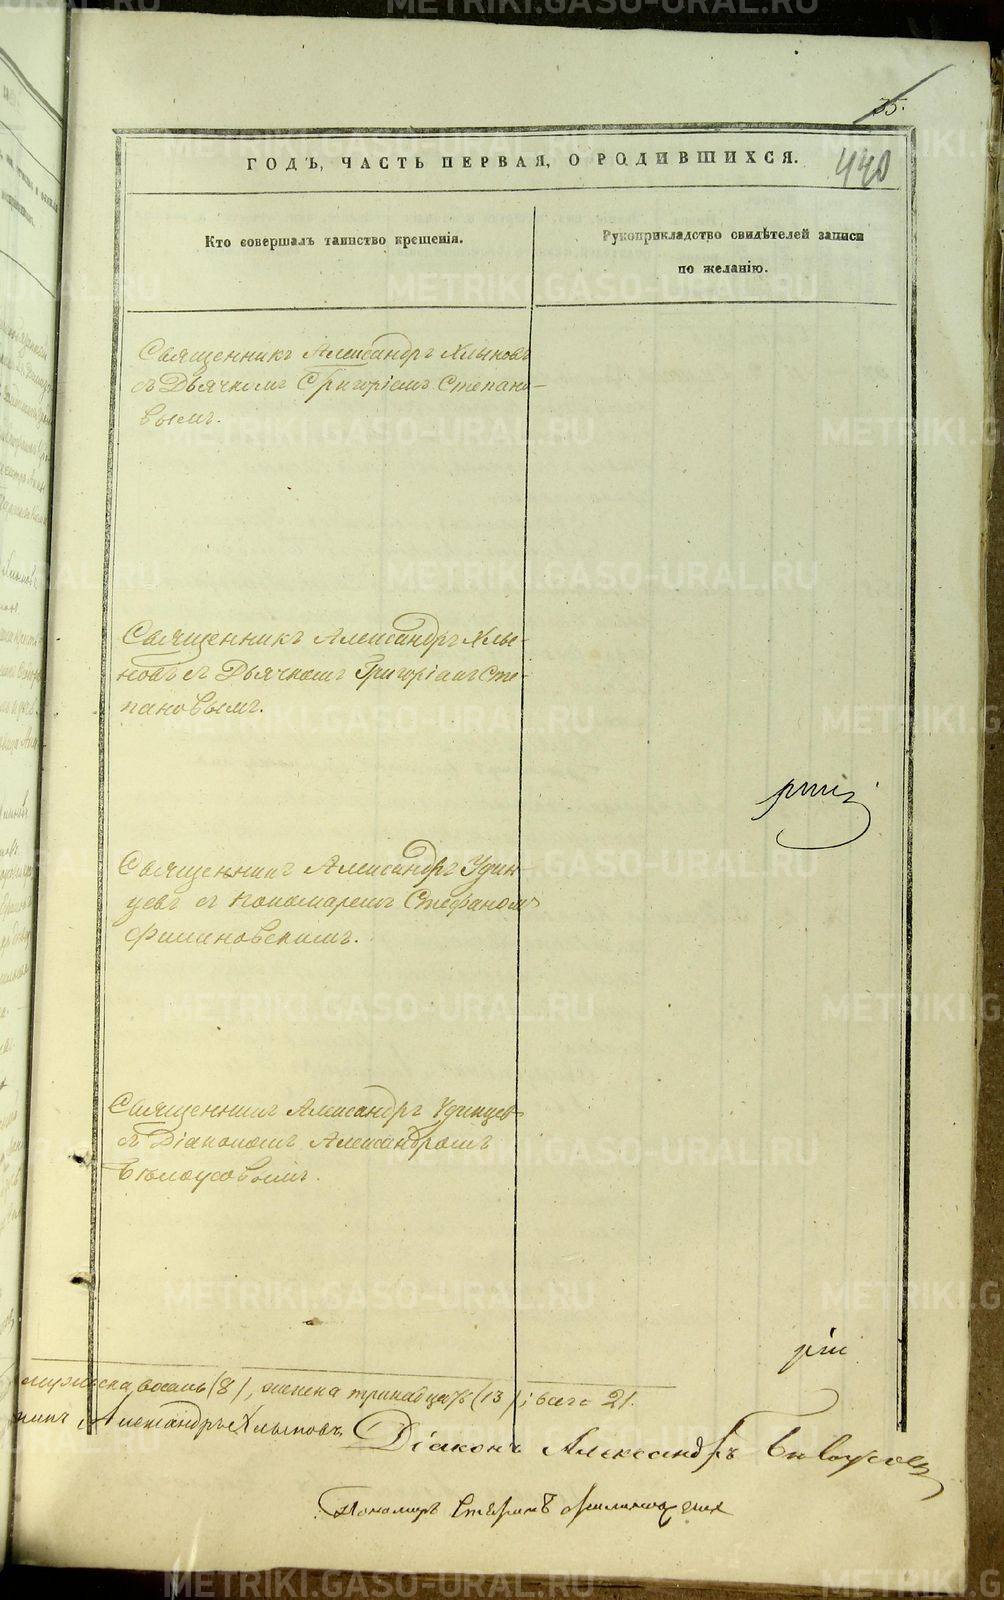 35.
440
ГОДЪ, ЧАСТЬ ПЕРВАЯ, О РОДИВШИХСЯ.
Кто совершалъ таинство крещенія.
Рукоприкладство свидѣтелей записи
по желанію.
Священникъ Александръ Хлыновъ
съ Дьячкомъ Григоріемъ Степано-
вымъ.
Священникъ Александръ Хлы-
новъ съ Дьячкомъ Григоріемъ Сте-
пановымъ.
Священникъ Александръ Удин-
цевъ съ Пономаремъ Стефаномъ
Филиновскимъ.
Священникъ Александръ Удинцевъ
съ Діакономъ Александромъ
Бѣлоусовымъ.
мужеска восемь (8), женска тринадцать (13); всего 21.
Александръ Хлыновъ
Діаконъ Александръ Бѣлоусовъ
Пономарь Стефанъ
METRIKI.GASO-URAL.RU